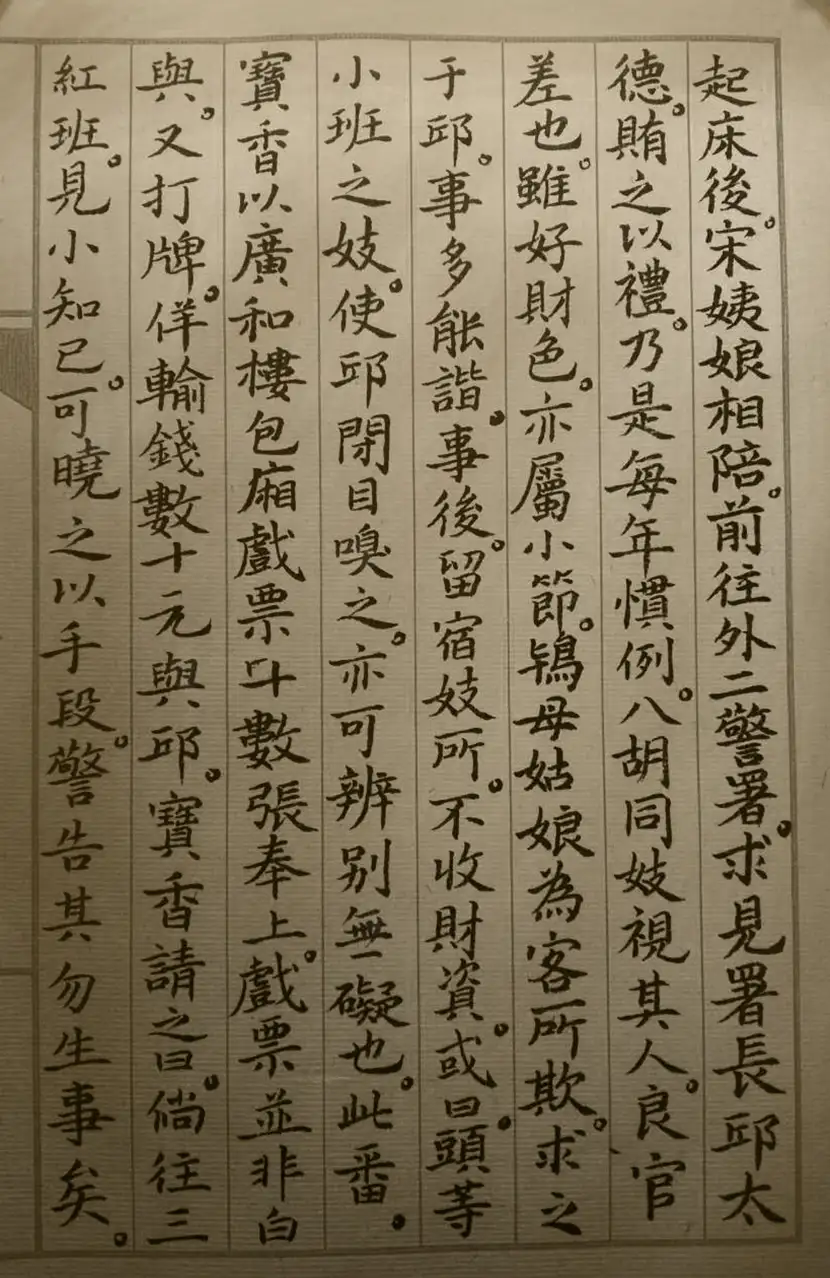 起床後。宋姨娘相陪。前往外二警署。求見署長邱太
德。賄之以禮。乃是每年慣例。八胡同妓視其人。良官
差也。雖好財色。亦屬小節。鴇母姑娘為客所欺。求之
于邱。事多能諧。事後。留宿妓所。不收財資。或曰。頭等
小班之妓。使邱閉目嗅之。亦可辨别無礙也。此番。
寶香以廣和樓包廂戲票十數張奉上。戲票並非白
與。又打牌。佯輸錢數十元與邱。寶香請之曰。倘往三
紅班。見小知己。可曉之以手段。警告其勿生事矣。